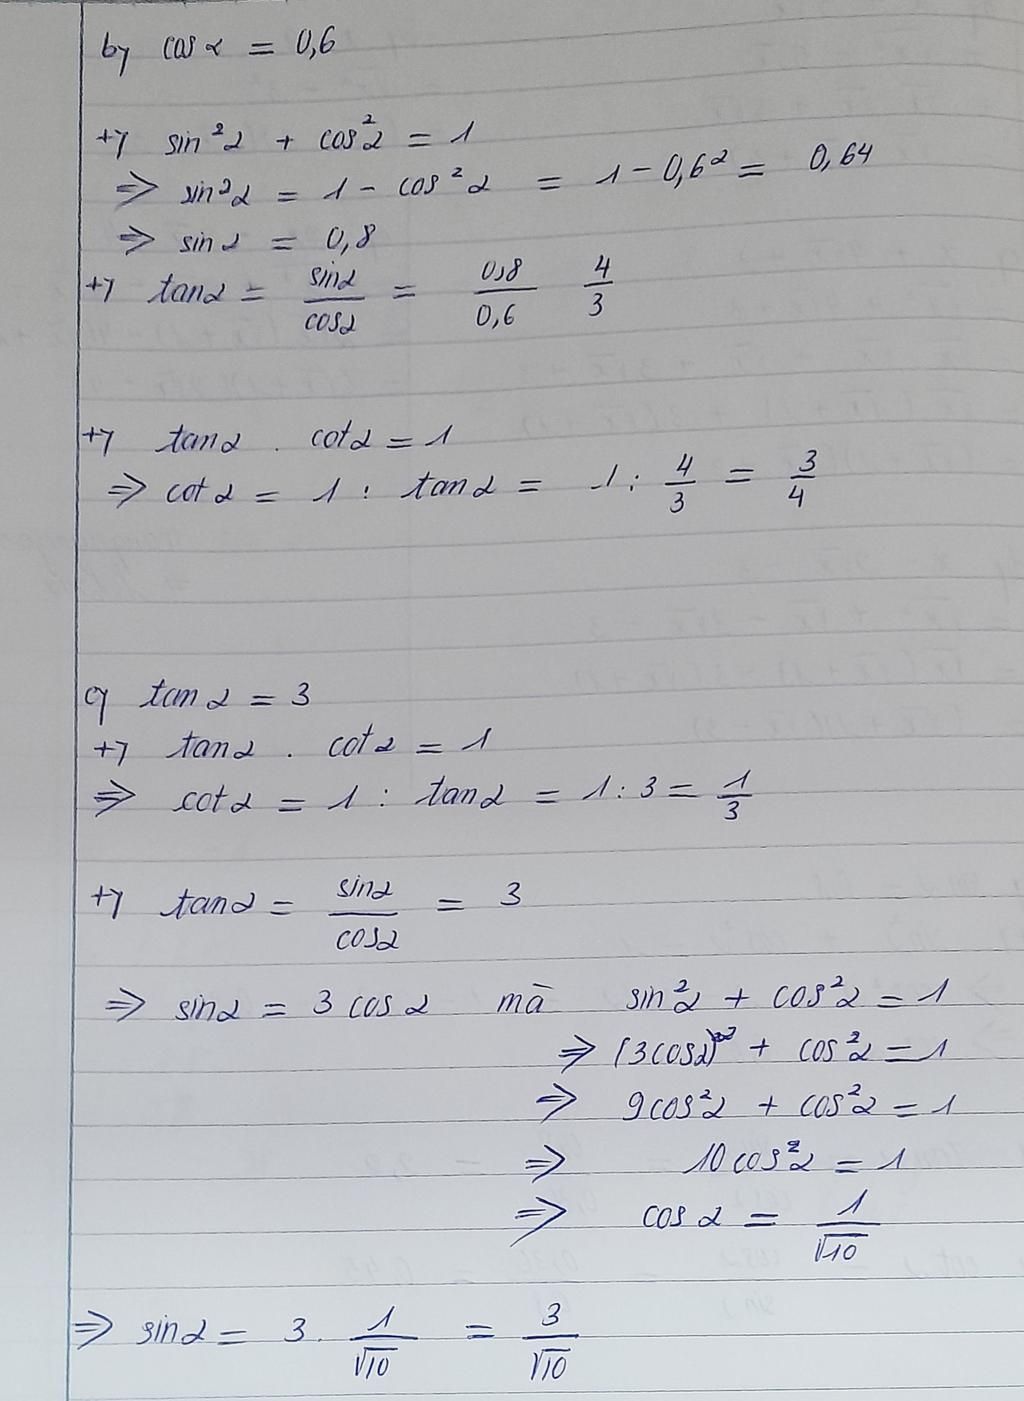 b) cos α = 0,6
+) sin²α + cos²α = 1
⇒ sin²α = 1 - cos²α = 1 - 0,6² = 0,64
⇒ sin α = 0,8
+) tanα = sinα/cosα = 0,8/0,6 4/3
+) tanα . cotα = 1
⇒ cotα = 1 : tanα = 1 : 4/3 = 3/4
c) tan α = 3
+) tanα . cotα = 1
⇒ cotα = 1 : tanα = 1 : 3 = 1/3
+) tanα = sinα/cosα = 3
⇒ sinα = 3 cosα mà sin²α + cos²α = 1
⇒ (3cosα)² + cos²α = 1
⇒ 9cos²α + cos²α = 1
⇒ 10cos²α = 1
⇒ cos α = 1/√10
⇒ sinα = 3 . 1/√10 = 3/√10